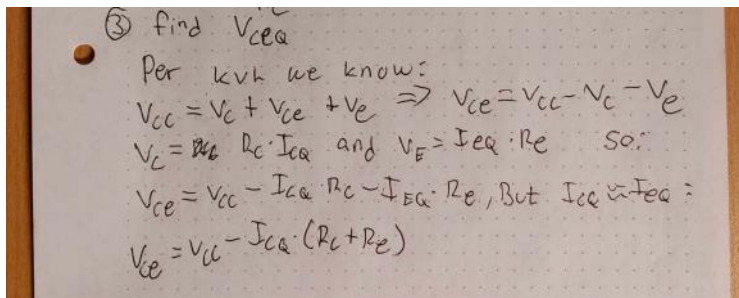 ③ find Vceq
Per kvh we know:
Vcc = Vc + Vce + Ve => Vce = Vcc - Vc - Ve
Vc = Rc · Icq and VE = Ieq · Re so:
Vce = Vcc - Icq · Rc - IEQ · Re, But Icq ≈ Ieq :
Vce = Vcc - Icq · (Rc + Re)